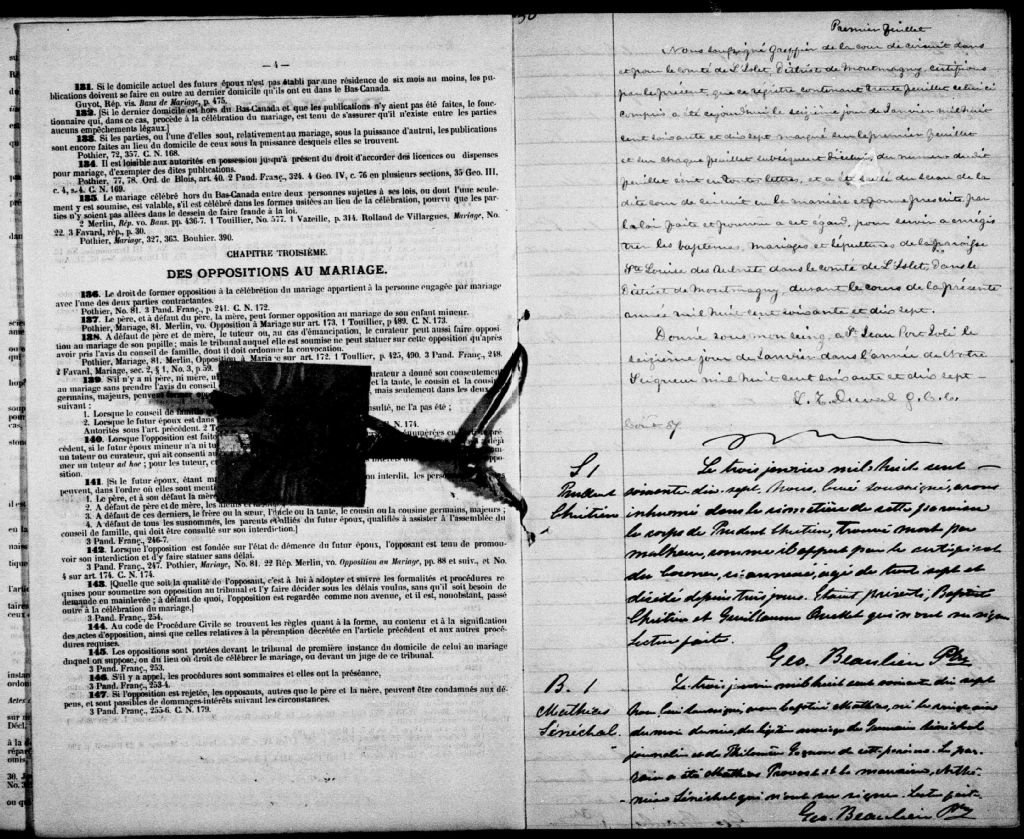 — 4 —
131. Si le domicile actuel des futurs époux n'est pas établi par une résidence de six mois au moins, les pu-
blications doivent se faire en outre au dernier domicile qu'ils ont eu dans le Bas-Canada.
Guyot, Rép. vis. Bans de Mariage, p. 475.
132. [Si le dernier domicile est hors du Bas-Canada et que les publications n'y aient pas été faites, le fonc-
tionnaire qui, dans ce cas, procède à la célébration du mariage, est tenu de s'assurer qu'il n'existe entre les parties
aucuns empêchements légaux.]
133. Si les parties, ou l'une d'elles sont, relativement au mariage, sous la puissance d'autrui, les publications
sont encore faites au lieu du domicile de ceux sous la puissance desquels elles se trouvent.
Pothier, 72, 357. C. N. 168.
134. Il est loisible aux autorités en possession jusqu'à présent du droit d'accorder des licences ou dispenses
pour mariage, d'exempter des dites publications.
Pothier, 77, 78. Ord. de Blois, art. 40. 2 Pand. Franç., 324. 4 Geo. IV, c. 76 en plusieurs sections, 35 Geo. III,
c. 4, s. 4. C. N. 169.
135. Le mariage célébré hors du Bas-Canada entre deux personnes sujettes à ses lois, ou dont l'une seule-
ment y est soumise, est valable, s'il est célébré dans les formes usitées au lieu de la célébration, pourvu que les par-
ties n'y soient pas allées dans le dessein de faire fraude à la loi.
2 Merlin, Rép. vo. Bans. pp. 436-7. 1 Touillier, No. 577. 1 Vazeille, p. 314. Rolland de Villargues, Mariage, No.
22. 3 Favard, rép., p. 30.
Pothier, Mariage, 327, 363. Bouhier. 390.
CHAPITRE TROISIÈME.
DES OPPOSITIONS AU MARIAGE.
136. Le droit de former opposition à la célébration du mariage appartient à la personne engagée par mariage
avec l'une des deux parties contractantes.
Pothier, No. 81. 3 Pand. Franç., p. 241. C. N. 172.
137. Le père, et à défaut du père, la mère, peut former opposition au mariage de son enfant mineur.
Pothier, Mariage, 81. Merlin, vo. Opposition à Mariage sur art. 173, 1 Touillier, p. 489. C. N. 173.
138. A défaut de père et de mère, le tuteur ou, au cas d'émancipation, le curateur peut aussi faire opposi-
tion au mariage de son pupille; mais le tribunal auquel elle est soumise ne peut statuer sur cette opposition qu'après
avoir pris l'avis du conseil de famille, dont il doit ordonner la convocation.
Pothier, Mariage, 81. Merlin, Opposition à Mariage sur art. 172. 1 Toullier, p. 425, 490. 3 Pand. Franç., 248.
2 Favard, Mariage, sec. 2, § 1, No. 3, p. 59.
139. S'il n'y a ni père, ni mère, ni curateur a donné son consentement
au mariage sans prendre l'avis du conseil et la tante, le cousin et la
germains, majeurs, peuvent former mais seulement dans les deux
suivant :
1. Lorsque le conseil de famille consulté, ne l'a pas été ;
2. Lorsque le futur époux est dans
Autorités sous l'art. précédent. 2 N. 174.
140. Lorsque l'opposition est faite
cédent, si le futur époux mineur n'a ni
un tuteur ou curateur, qui ait consenti
mer un tuteur ad hoc ; pour les tuteur,
sition.
141. [Si le futur époux, étant interdit, les
peuvent, dans l'ordre où elles sont
1. Le père, et à son défaut la mère
2. A défaut de père et de mère, les
3. A défaut de ces derniers, le frère ou la sœur, l'oncle ou la tante, le cousin ou la cousine germains, majeurs ;
4. A défaut de tous les susnommés, les parents et alliés du futur époux, qualifiés à assister à l'assemblée du
conseil de famille, qui doit être consulté sur son interdiction.]
3 Pand. Franç., 246-7.
142. Lorsque l'opposition est fondée sur l'état de démence du futur époux, l'opposant est tenu de promou-
voir son interdiction et d'y faire statuer sans délai.
3 Pand. Franç., 247. Pothier, Mariage, No. 81. 22 Rép. Merlin, vo. Opposition au Mariage, pp. 88 et suiv., et No.
4 sur art. 174. C. N. 174.
143. [Quelle que soit la qualité de l'opposant, c'est à lui à adopter et suivre les formalités et procédures re-
quises pour soumettre son opposition au tribunal et l'y faire décider sous les délais voulus, sans qu'il soit besoin de
demande en mainlevée ; à défaut de quoi, l'opposition est regardée comme non avenue, et il est, nonobstant, passé
outre à la célébration du mariage.]
3 Pand. Franç., 254.
144. Au code de Procédure Civile se trouvent les règles quant à la forme, au contenu et à la signification
des actes d'opposition, ainsi que celles relatives à la péremption décrétée en l'article précédent et aux autres procé-
dures requises.
145. Les oppositions sont portées devant le tribunal de première instance du domicile de celui au mariage
duquel on s'oppose, ou du lieu où doit se célébrer le mariage, ou devant un juge de ce tribunal.
3 Pand. Franç., 253.
146. S'il y a appel, les procédures sont sommaires et elles ont la préséance.
3 Pand. Franç., 253-4.
147. Si l'opposition est rejetée, les opposants, autres que le père et la mère, peuvent être condamnés aux dé-
pens, et sont passibles de dommages-intérêts suivant les circonstances.
3 Pand. Franç., 255-6. C. N. 179.
Premier feuillet
Nous soussigné Greffier de la cour de circuit dans
et pour le comté de L'Islet, District de Montmagny, certifions
par le présent, que ce registre contenant trente feuillets celui ci
compris a été ce jourd'hui le seizième jour de Janvier mil huit
cent soixante et dix sept, paraphé sur le premier feuillet
et sur chaque feuillet subséquent du numéro du dit
feuillet écrit en toutes lettres, et a été scellé du sceau de la
dite cour de circuit en la manière et forme prescrite par
la loi faite et pourvue à cet égard, pour servir à enrégis
trer les baptemes, mariages et sépultures de la paroisse
Ste Louise des Aulnets dans le comté de L'Islet, Dans le
District de Montmagny, durant le cours de la présente
année mil huit cent soixante et dix sept.
Donné sous mon seing, a St Jean Port Joli le
seizième jour de Janvier dans l'année de Notre
Seigneur mil huit cent soixante et dix sept —
L. Z. Duval G.C.C.
S. 1
Prudent
Chrétien
Le trois janvier mil huit cent
soixante dix-sept, Nous, Curé soussigné, avons
inhumé dans le cimetière de cette paroisse
le corps de Prudent Chrétien, trouvé mort par
malheur, comme il appert par le certificat
du Coroner, ci-annexé, agé de trente sept et
décédé depuis trois jours. Etaient présents, Baptiste
Chrétien et Guillaume Ouellet qui n'ont su signer
Lecture faite.
Geo. Beaulieu Ptre
B. 1
Mathias
Sénéchal.
Le trois janvier mil huit cent soixante dix sept
Nous Curé soussigné, avons baptisé Mathias, né le
du mois dernier, du légitime mariage de Germain Sénéchal
journalier et de Philomène Gagnon de cette paroisse. Le par
rain a été Mathias Provost et la marraine,
Sénéchal qui n'ont su signer. Lect. faite.
Geo. Beaulieu Ptre